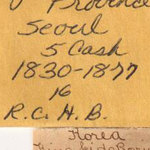 Province
Seoul
5 Cash
1830-1877
16
R.C.H.B.
Korea